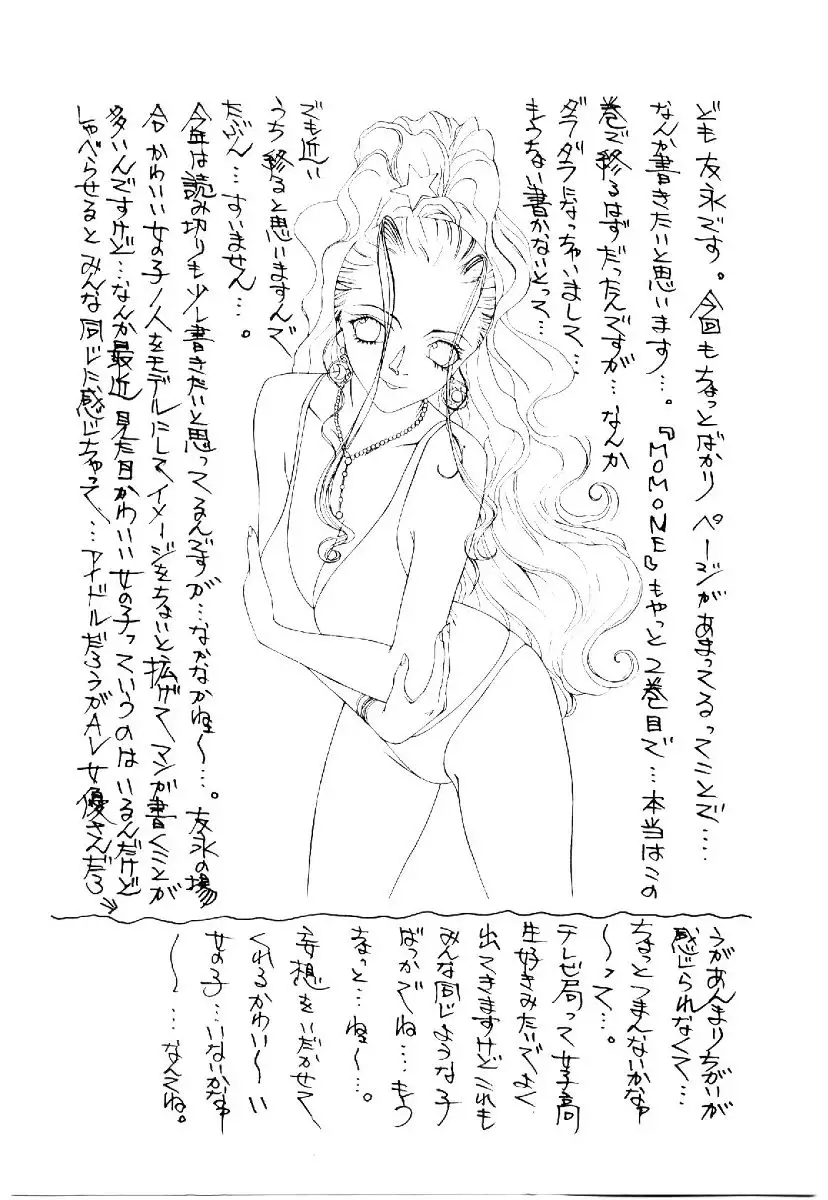 ども友永です。今回もちょっとばかりページがあまってるってことで‥‥
なんか書きたいと思います‥‥。『MOMONE』もやっと2巻目で‥‥本当はこの
巻で終るはずだったんですが‥‥なんか
ダラダラになっちゃいまして‥‥
もうちょい書かないとって‥‥
でも近い
うち終ると思いますんで
たぶん‥‥すいません‥‥。
今年は読み切りも少し書きたいと思ってるんですが‥‥なかなかね〜‥‥。友永の場
合かわいい女の子1人をモデルにしてイメージをちょいと拡げてマンガ書くことが
多いんですけど‥‥なんか最近見た目かわいい女の子っていうのはいるんだけど
しゃべらせるとみんな同じに感じちゃって‥‥アイドルだろうがAV女優さんだろ
うがあんまりちがいが
感じられなくて‥‥
ちょっとつまんないかなや
〜って‥‥。
テレビ局って女子高
生好きみたいでよく
出てきますけどこれも
みんな同じような子
ばっかでね‥‥もう
ちょっと‥‥ね〜‥‥。
妄想をいだかせて
くれるかわい〜い
女の子‥‥いないかなや
〜‥‥なんてね。